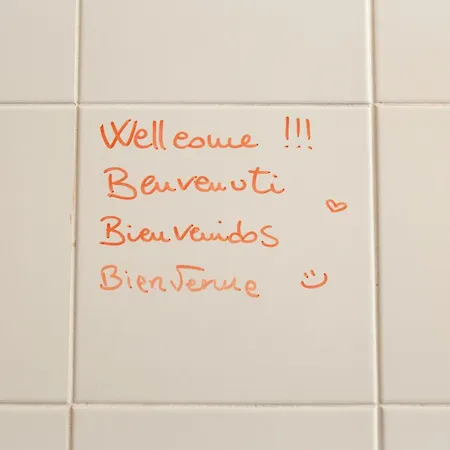 Wellcome !!!
Benvenuti
Bienvenidos
Bienvenue